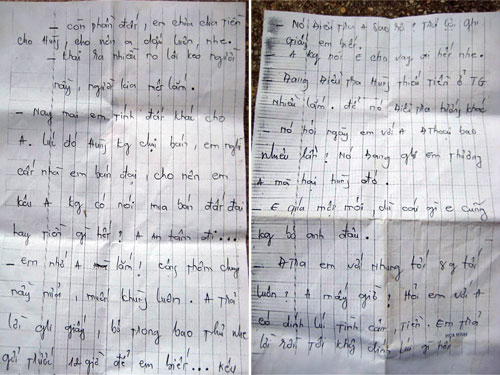 - còn phần đất, em chưa đưa tiền
cho Hưng, cho nên a đợi luôn, nhe.
- khai ra nhiều nó lôi kéo người
này, người kia mệt lắm.
- Nay mai em tính đất khác cho
A. lúc đó Hưng kg chịu bán, em nghỉ
cất nhà em bán đợi, cho nên em
kêu A kg có nói mua bán đất đai
hay tiền gì hết? A An tâm đi...
- em nhớ A lắm! cảng thêm chuyện
này nữa, muốn khùng luôn. A trả
lời ghi giấy, bỏ trong bao thư nhe
gởi trước 12 giờ để em biết... kêu
- Nó Điều Tra A sao rồi? Trả lời ghi
giấy em hết.
- A kg nói E cho vay gì hết nhe.
- Đang Điều tra Hưng thiếu tiền ở TG
Nhiều lắm. để nó điều tra hướng khác
- Nó hỏi ngày em với A Athoại bao
nhiêu lần? Nó Đang ghi em thương
A mà hại Hưng đó.
- E quá mệt mỏi, dù cái gì E cũng
kg bỏ anh đâu.
- ĐTra em với Nhung tới 8g tối
luôn? A mấy giờ? Hỏi em với A
có dính líu tình cảm, Tiền. Em trả
lời rồi Tôi không dính líu gì hết